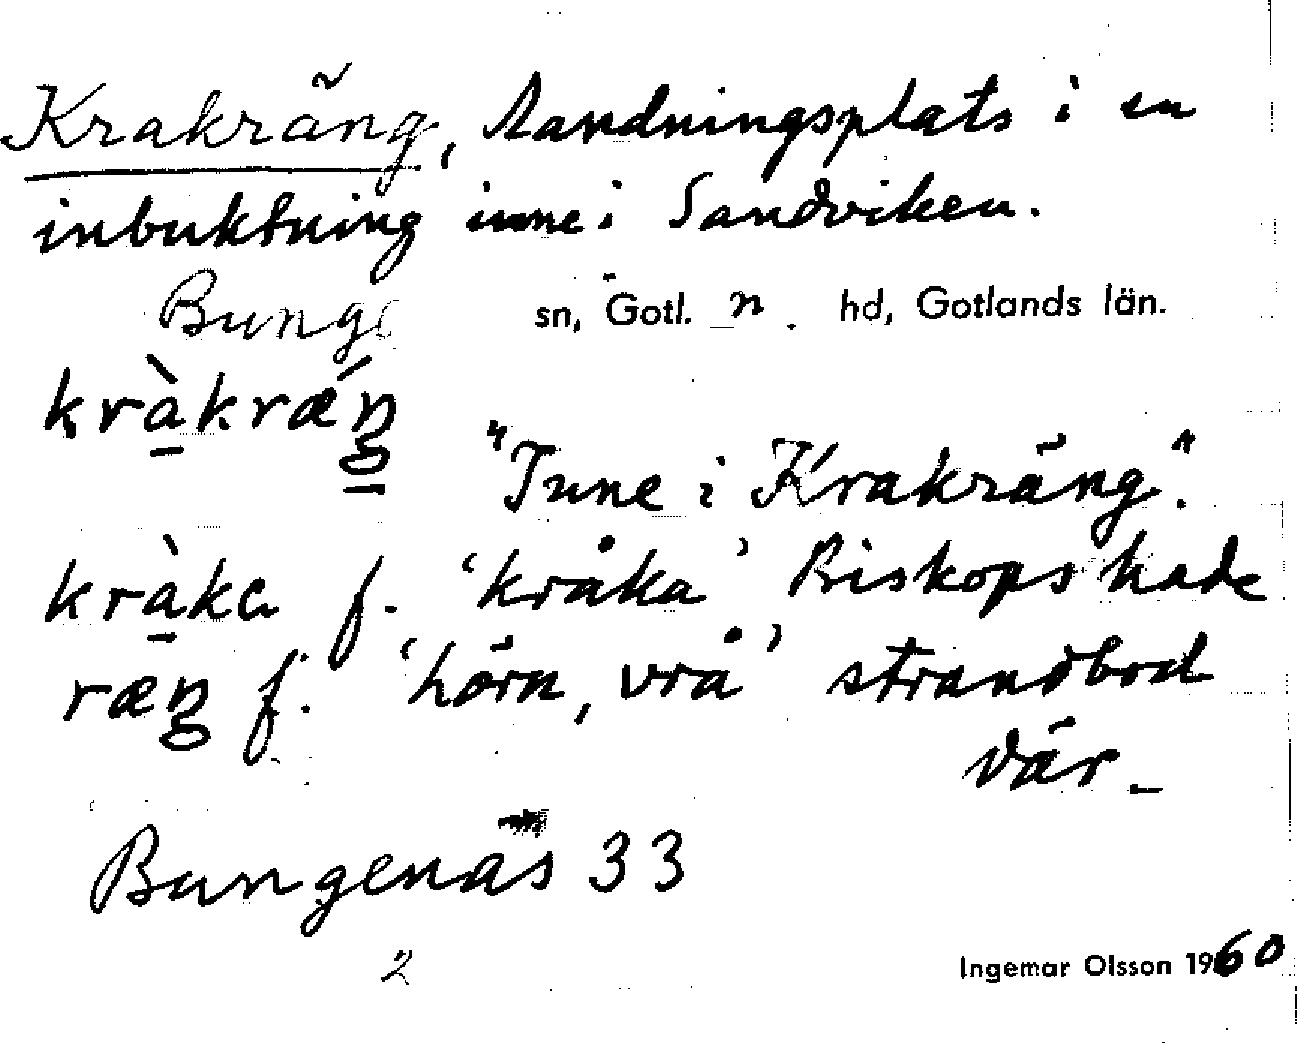 Krakräng, landningsplats i en
inbuktning inne i Sandviken.
Bunge sn, Gotl. n. hd, Gotlands län.
kràkrǽŋ
"Inne i Krakräng".
kràka f. 'kråka' Biskops hade
ræŋ f. 'hörn, vrå' strandbod
där.
Bungenäs 33
2
Ingemar Olsson 1960